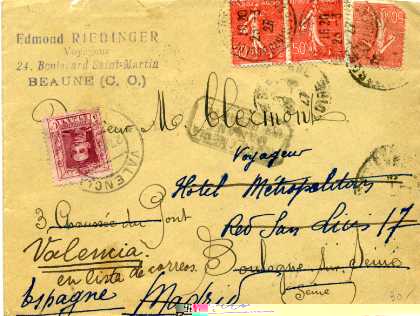 Edmond RIEDINGER
Voyageur
24, Boulevard Saint-Martin
BEAUNE (C. O.)
Monsieur M. Clermont
Voyageur
Hotel Métropolitain
3 Chaussée du Pont
Red San Luis 17
Valencia
Boulogne sur Seine
en lista de correos.
Seine
Espagne Madrid
VALENCIA
50c